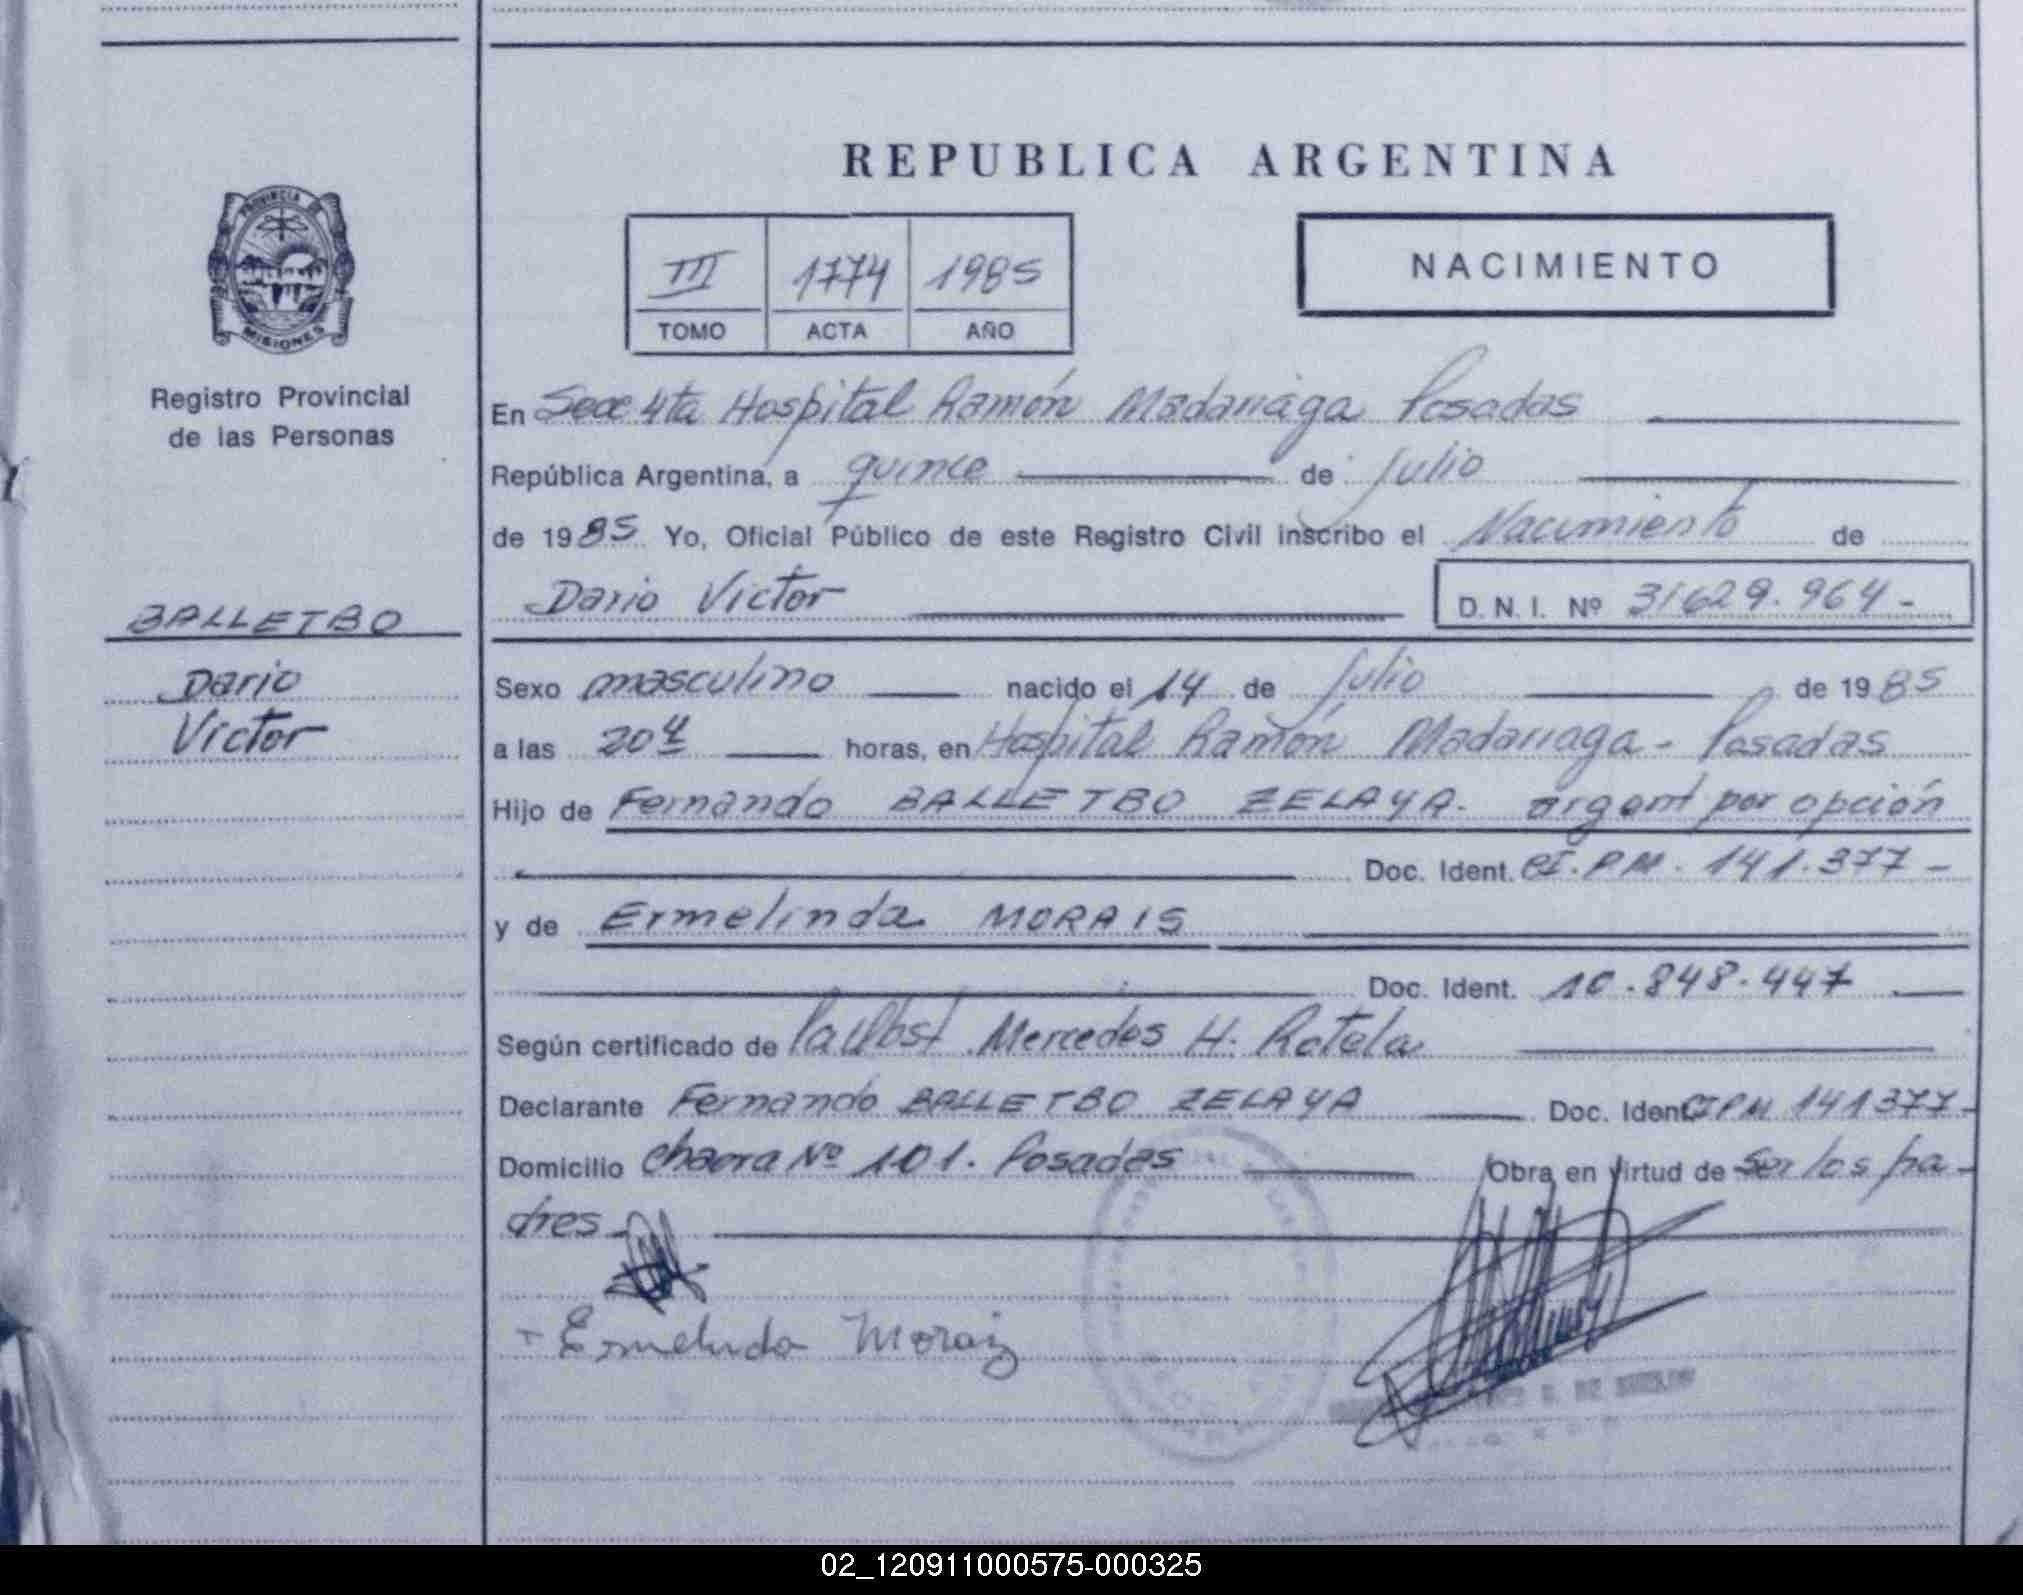 REPUBLICA ARGENTINA
PROVINCIA DE
MISIONES
Registro Provincial
de las Personas
III 1774 1985
TOMO ACTA AÑO
NACIMIENTO
En Secc 4ta Hospital Ramón Madariaga Posadas
República Argentina, a quince de Julio
de 1985 Yo, Oficial Público de este Registro Civil inscribo el Nacimiento de
Dario Victor D. N. I. Nº 31629.964-
BALLETBO
Dario
Victor
Sexo masculino nacido el 14 de Julio de 1985
a las 20 horas, en Hospital Ramón Madariaga - Posadas
Hijo de Fernando BALLETBO ZELAYA. argent por opción
Doc. Ident. CI.PM. 141.377-
y de Ermelinda MORAIS
Doc. Ident. 10.848.447
Según certificado de Mercedes H. Rotela
Declarante Fernando BALLETBO ZELAYA Doc. Ident CIPM 141377-
Domicilio chacra Nº 101. Posadas Obra en virtud de ser los pa-
dres
Ermelinda Moraiz
02_120911000575-000325